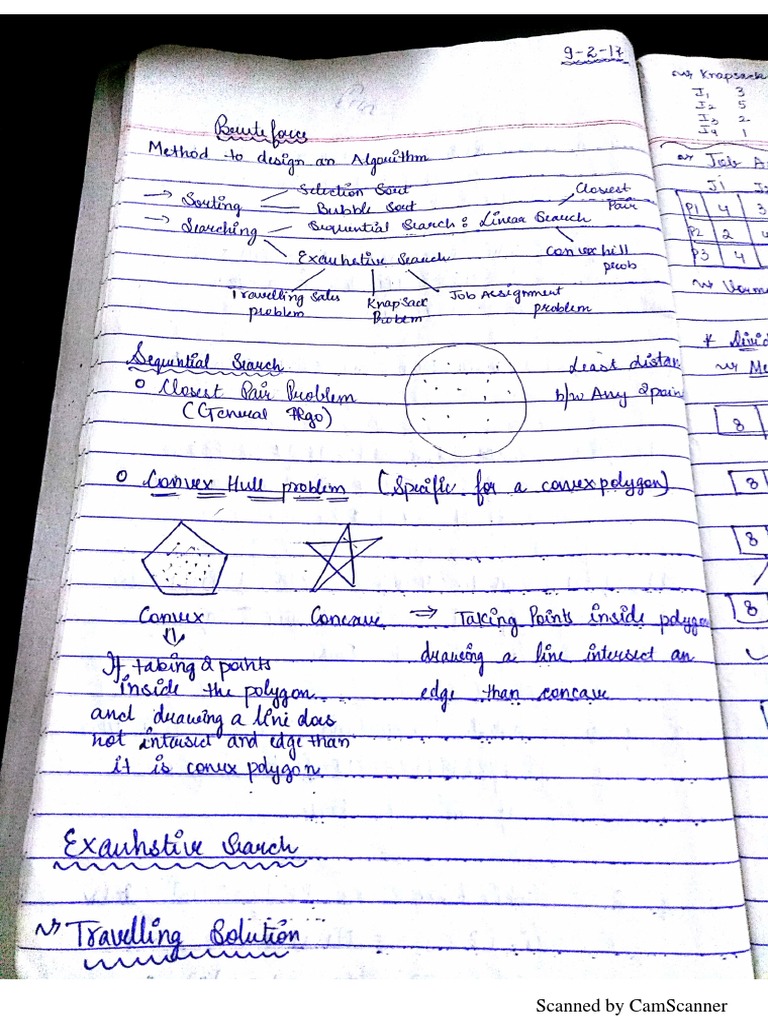 9-2-17
Bruteforce
Method to design an Algorithm
→ Sorting
Selection Sort
Bubble Sort
→ Searching
Sequential Search : Linear Search
Closest
Pair
Convex hill
prob
Exauhstive Search
Travelling sales
problem
Knapsack
Problem
Job Assignment
problem
Sequntial Search
o Closest Pair Problem
(General Algo)
Least distan
b/w Any 2 pain
o Convex Hull problem (Specific for a convex polygon)
Convex
Concave ⇒ Taking Points inside polygon
drawing a line intersect an
edge than concave
If taking 2 points
inside the polygon
and drawing a line does
not intersect and edge than
it is convex polygon
Exauhstive Search
Travelling Solution
Knapsack
J1 3
J2 5
J3 2
J4 1
Job A
J1
P1 4 3
P2 2 4
P3 4
8
8
8
8
Scanned by CamScanner